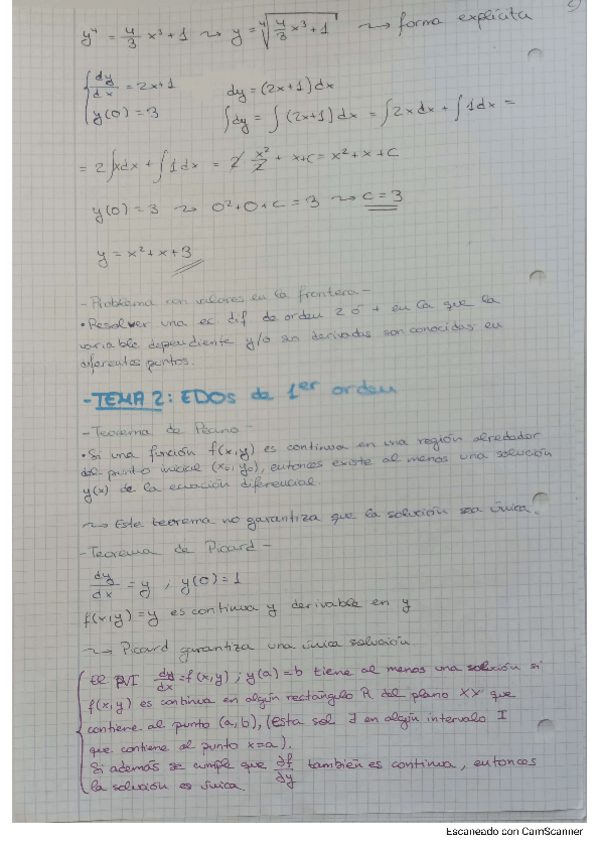 y⁴ = 4/3 x³ + 1 ⤳ y = ⁴√(4/3 x³ + 1) ⤳ forma explícita
{ dy/dx = 2x+1    dy = (2x+1)dx
y(0) = 3    ∫dy = ∫(2x+1)dx = ∫2xdx + ∫1dx =
= 2∫xdx + ∫1dx = 2 x²/2 + x + C = x² + x + C
y(0) = 3 ⤳ 0² + 0 + C = 3 ⤳ C = 3
y = x² + x + 3
- Problema con valores en la frontera -
• Resolver una ec. dif de orden 2 ó + en la que la
variable dependiente y/o sus derivadas son conocidas en
diferentes puntos.
- TEMA 2: EDOs de 1er orden
- Teorema de Peano -
• Si una función f(x,y) es continua en una región alrededor
del punto inicial (x₀, y₀), entonces existe al menos una solución
y(x) de la ecuación diferencial
⤳ Este teorema no garantiza que la solución sea única.
- Teorema de Picard -
dy/dx = y ; y(0) = 1
f(x,y) = y es continua y derivable en y
⤳ Picard garantiza una única solución
{ El PVI dy/dx = f(x,y) ; y(a) = b tiene al menos una solución si
f(x,y) es continua en algún rectángulo R del plano XY que
contiene al punto (a,b), (esta sol ∃ en algún intervalo I
que contiene al punto x=a).
Si además se cumple que ∂f/∂y también es continua, entonces
la solución es única.
Escaneado con CamScanner